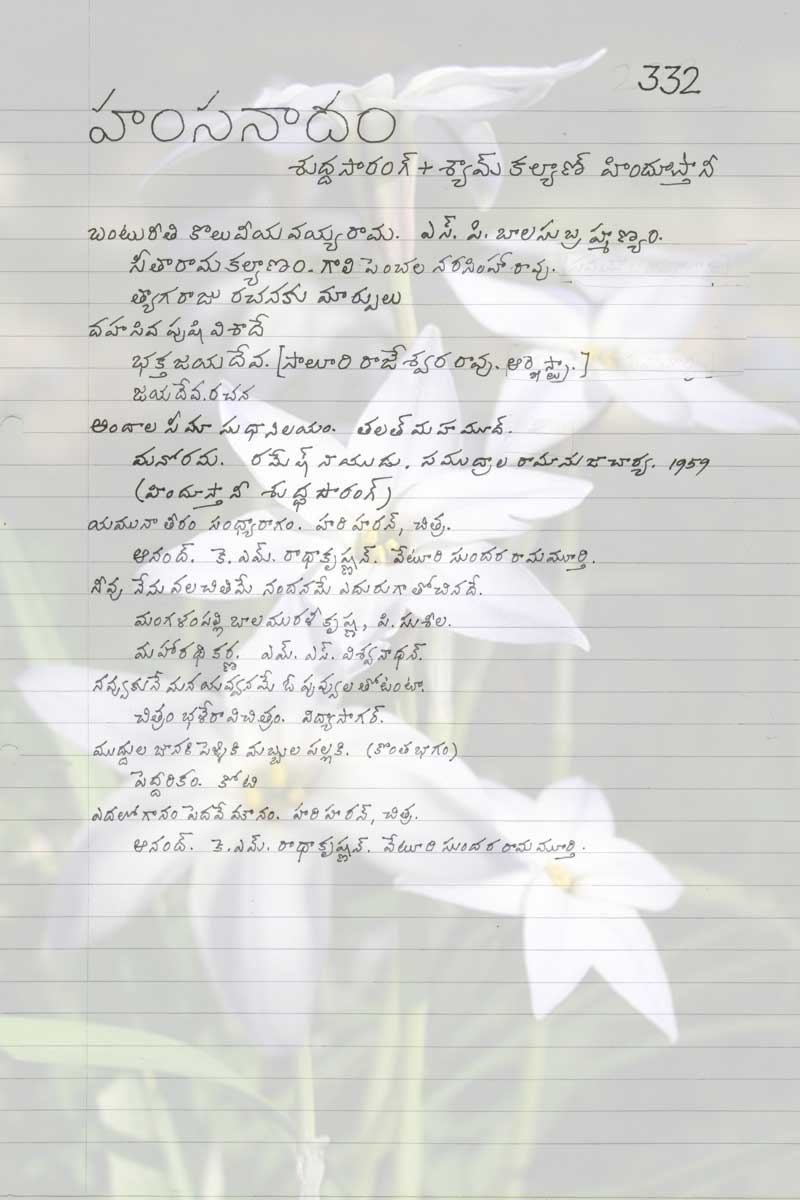 332
హంసనాదం
శుద్ధసారంగ్ + శ్యామ్ కల్యాణ్ హిందూస్తానీ
బంటురీతి కొలువీయవయ్యరామ. ఎస్. పి. బాలసుబ్రహ్మణ్యం.
సీతారామకల్యాణం. గాలి పెంచల నరసింహారావు.
త్యాగరాజు రచనకు మార్పులు
వహసివ పుషి విశాదే
భక్త జయదేవ. [సాలూరి రాజేశ్వరరావు. ఆర్కెస్ట్రా.]
జయదేవ.రచన
అందాల సీమా సుధానిలయం. తలత్ మహమూద్.
మనోరమ. రమేష్ నాయుడు. సముద్రాల రామానుజాచార్య. 1959
(హిందూస్తానీ శుద్ధసారంగ్)
యమునా తీరం సంధ్యారాగం. హరిహరన్, చిత్ర.
ఆనంద్. కె.ఎమ్. రాధాకృష్ణన్. వేటూరి సుందరరామమూర్తి.
నీవు నేను వలచితిమే నందనమే ఎదురుగా తోచినదే.
మంగళంపల్లి బాలమురళీకృష్ణ, పి. సుశీల.
మహారథి కర్ణ. ఎమ్. ఎస్. విశ్వనాథన్.
నవ్వుకునే మన యవ్వనమే ఓ పువ్వులతోటంటా.
చిత్రం భళేరావిచిత్రం. విద్యాసాగర్.
ముద్దుల జానకి పెళ్ళికి మబ్బుల పల్లకి. (కొంతభాగం)
పెద్దరికం. కోటి
ఎదలోగానం పెదవే మౌనం. హరిహరన్, చిత్ర.
ఆనంద్. కె.ఎమ్. రాధాకృష్ణన్. వేటూరి సుందరరామమూర్తి.